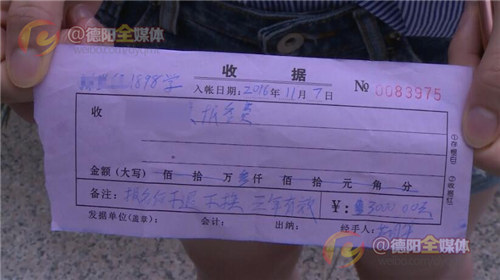 @德阳全媒体
收 据
1898学
入帐日期：2016年11月7日
№ 0083975
收
报名费
金额（大写） 佰 拾 万 叁仟 佰 拾 元 角 分
备注：报名后不退 不换 三年有效
¥：3000.00元
发据单位（盖章）： 会计： 出纳： 经手人：
@德阳全媒体